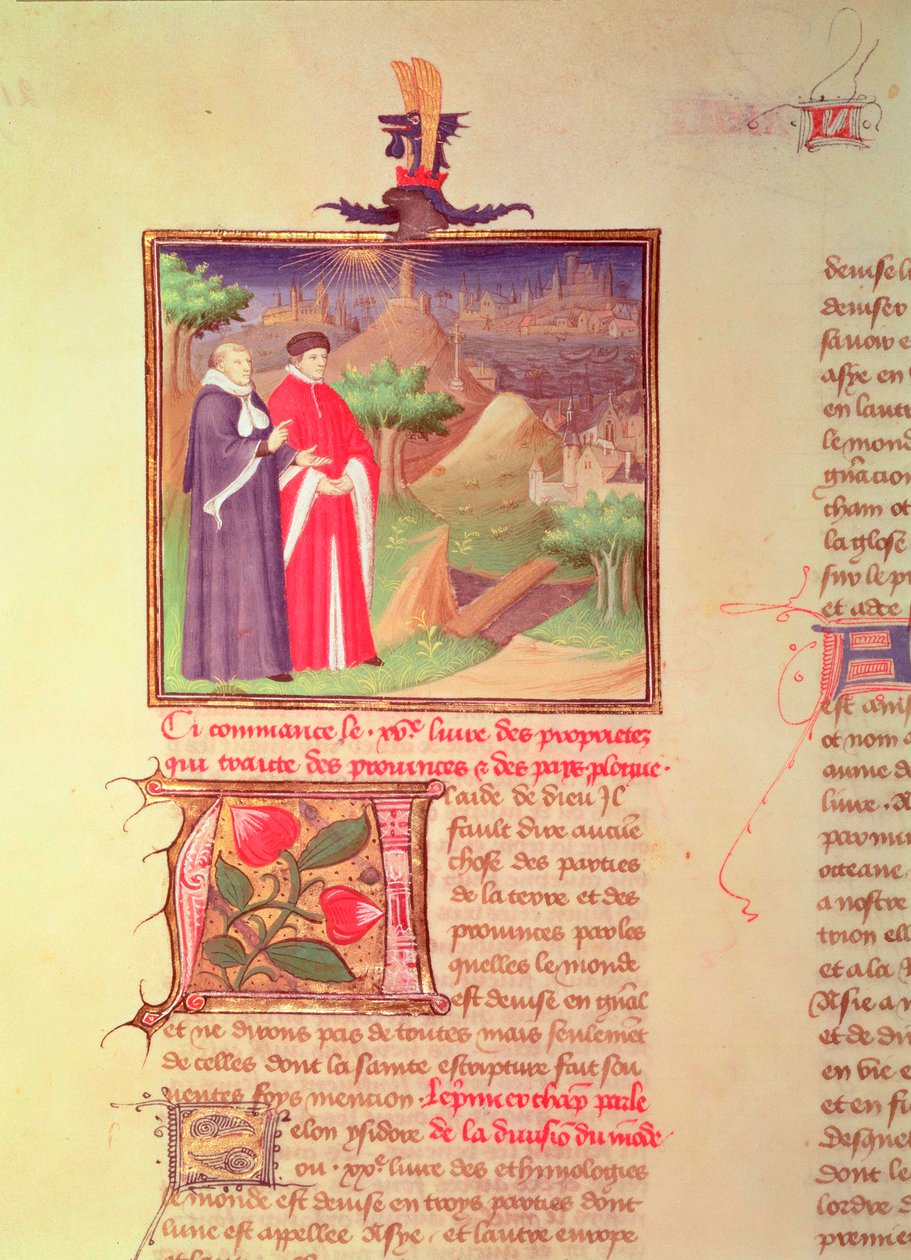 Ci commance le · xve livre des proprietez
qui traite des provinces & des pays ploque ·
A laide de dieu Jl
fault dire aucue
chose des parties
de la terre et des
provinces par les
quelles le monde
est devise en gnal
et ne dirons pas de toutes mais seulemet
de celles dont la sainte escripture fait sou
ventes foys mention · Le pmier chap parle
Selon ysidore de la division du mode
ou · xxe livre des ethimologies
le monde est devise en troys parties dont
lune est appellee Asye · et lautre europe
devise l
deviser
savoir e
asye en
en lautr
le mond
gnacion
cham et
la glose
sur le p
et adce
A
est amis
et nom a
aume d
livre · A
par mi
occeane
a nostre
trion ell
et a la
Asie a
et de di
en vie e
et en fi
desque
dont le
lordre d
premie